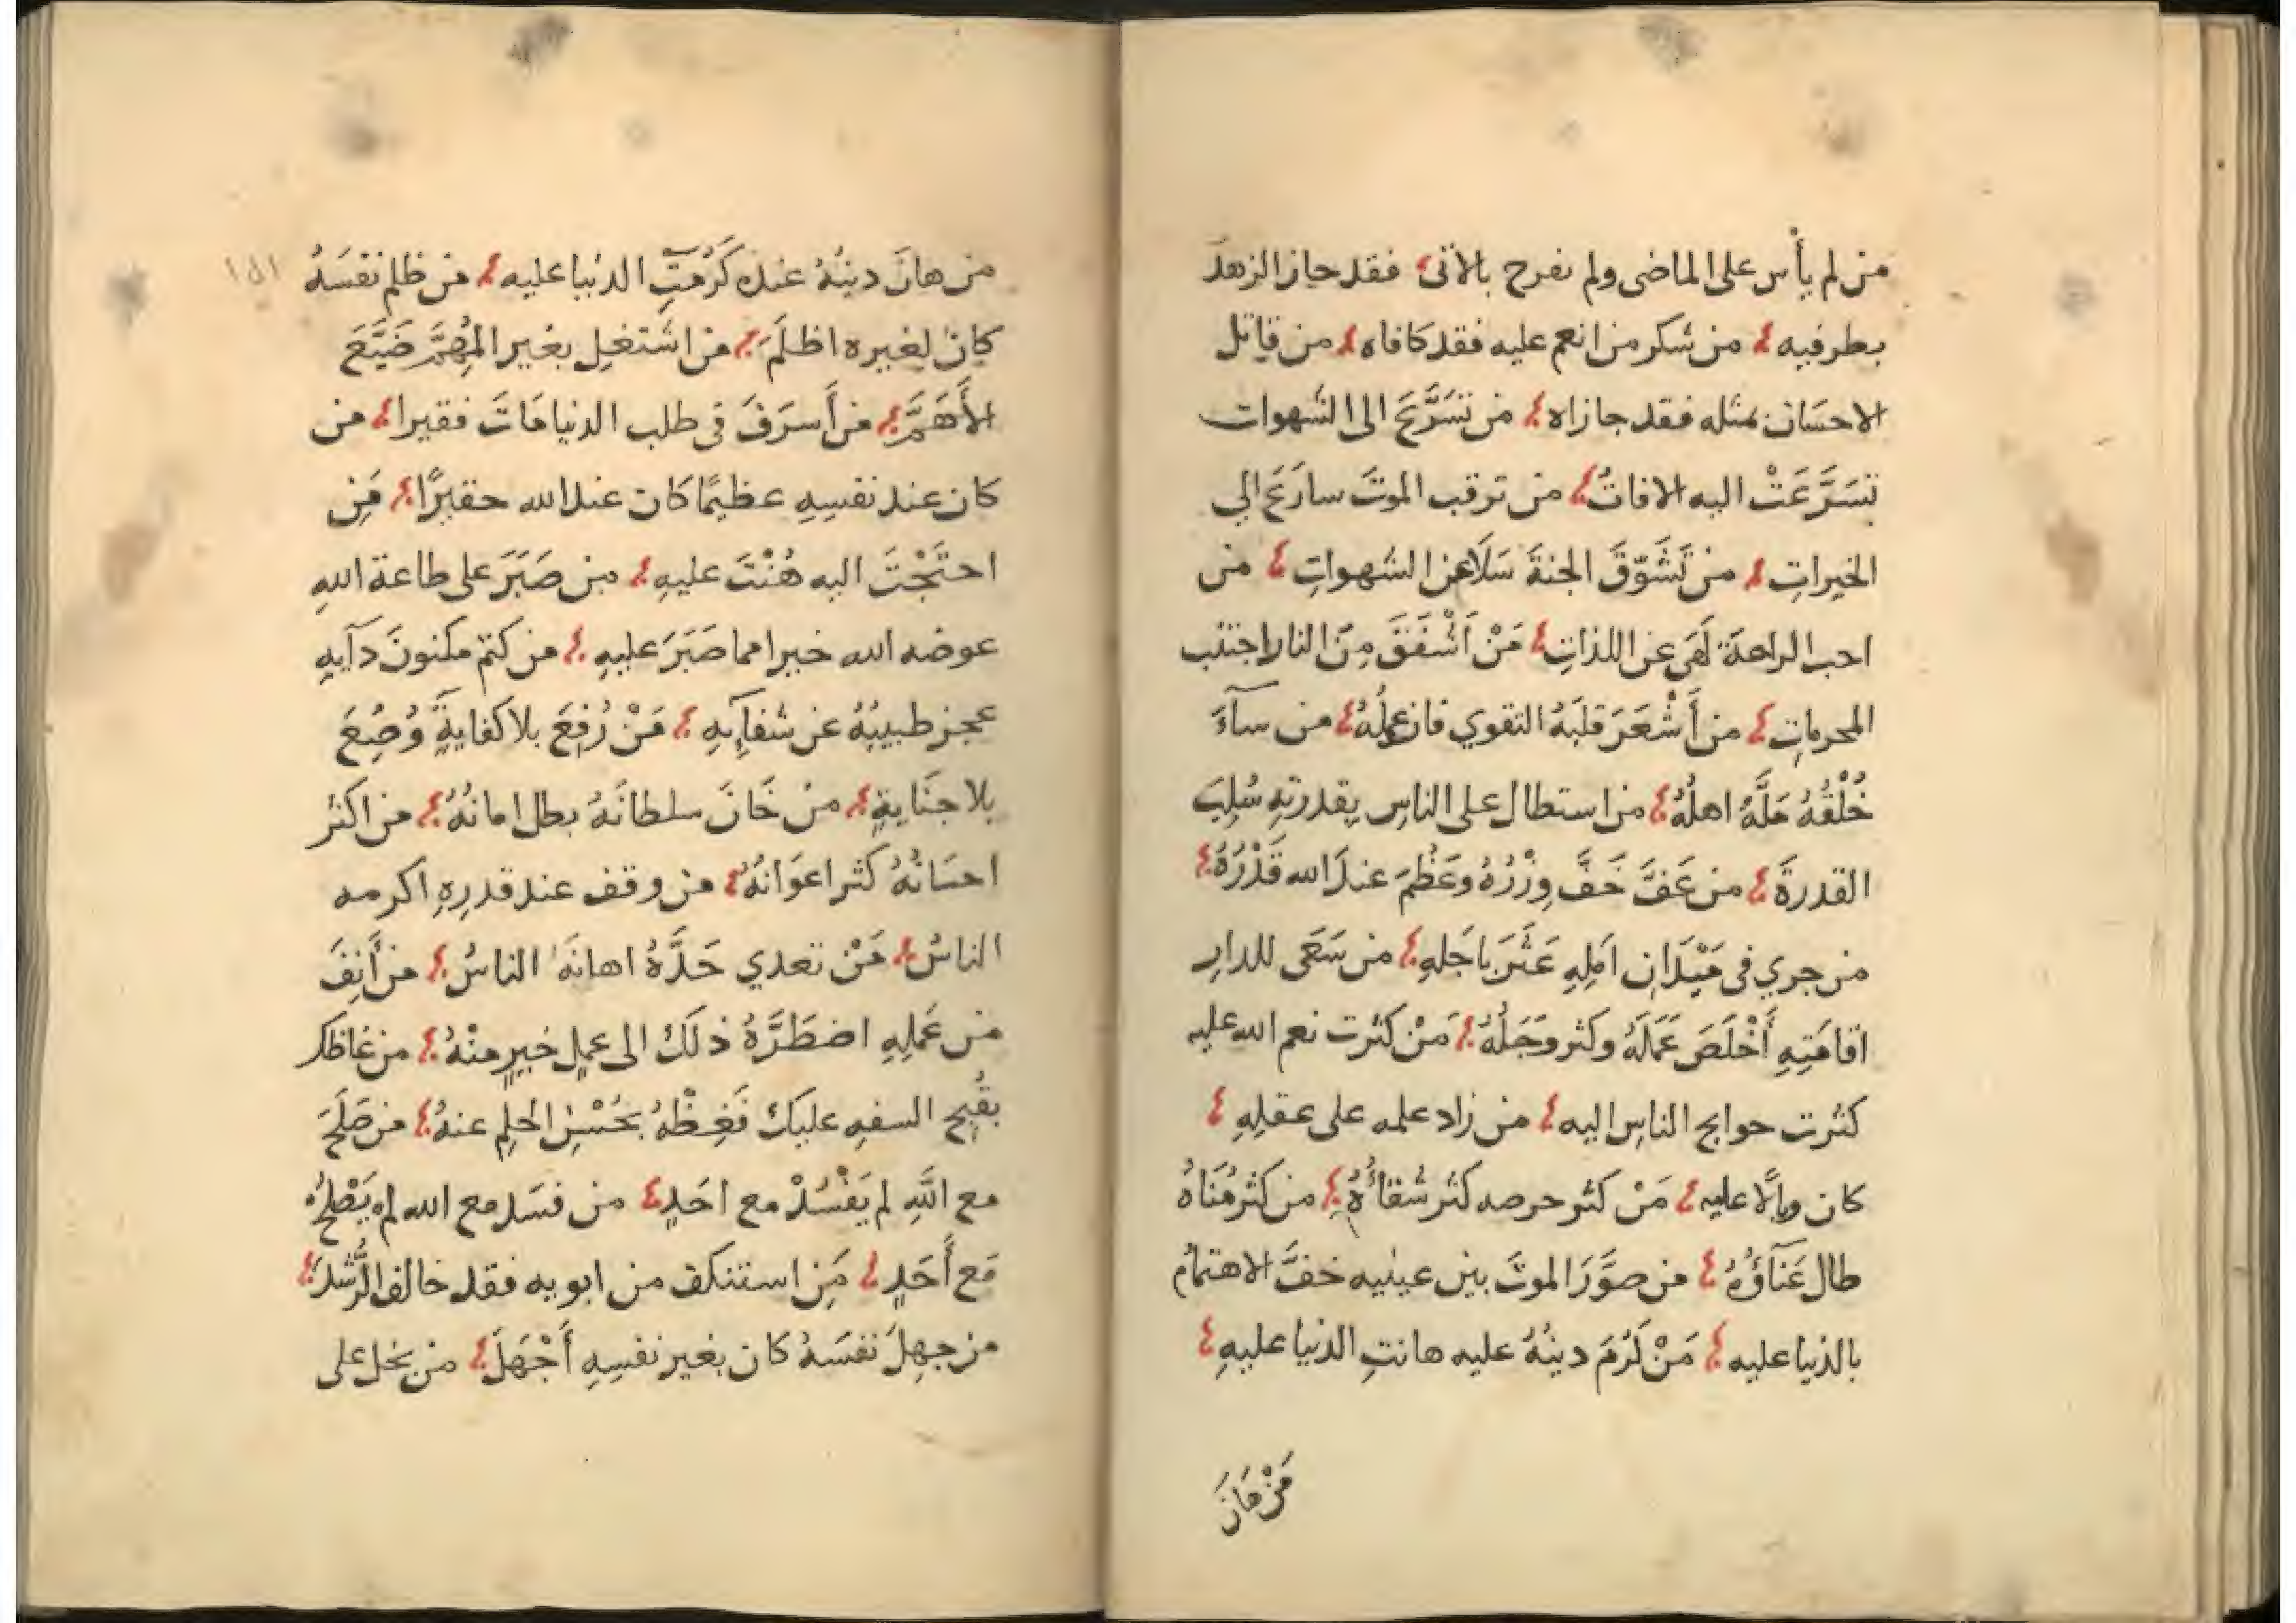 من لم يأس على الماضى ولم يفرح بالآتى فقد حاز الزهدَ
بطرفيه من شكر من انعم عليه فقد كافاه من قابل
الاحسَان بمثله فقد جازاه من تسَرَّعَ الى الشهوات
تسَرَّعَتْ اليه الافاتُ من ترقب الموتَ سارَعَ الي
الخيراتِ من تَشَوَّقَ الجنةَ سَلَا عن الشهواتِ من
احب الراحة لَهىَ عن اللذاتِ مَنْ اَشْفَقَ مِنَ النار اجتنب
المحرماتِ من أَشْعَرَ قلبَهُ التقوي فاز عملُهُ من سآءَ
خُلْقُهُ مَلَّهُ اهلُهُ من استطال على الناسِ بقدرتهِ سُلِبَ
القدرةَ من عَفَّ خَفَّ وِزْرُهُ وعَظُمَ عندَ الله قَدْرُهُ
من جري فى مَيْدَانِ اَمَلِهِ عَثَرَ باَجَلهِ من سَعَى للدارِ
اقامَتِهِ أَخْلَصَ عَمَلَهُ وكثر وَجَلُهُ مَنْ كثرت نعم الله عليه
كثرت حوايج الناسِ اليه من زاد علمه على عقلِهِ
كان وبالًا عليه مَنْ كثر حرصه كثر شقاؤُهُ من كثر مُنَاهُ
طال عَنَآؤُهُ من صوَّرَ الموتَ بين عينيه خفَّ الاهتمامُ
بالدنيا عليه مَنْ كَرُمَ دينُهُ عليه هانتِ الدنيا عليهِ
مَنْ هَانَ
من هانَ دينُهُ عندَهُ كَرُمَتِ الدنيا عليه من ظلم نفسَهُ
كان لغيره اظلَمَ من اشتغل بغير المُهِمِّ ضَيَّعَ
الأَهَمَّ من أَسرَفَ فى طلب الدنيا مَاتَ فقيرا من
كان عند نفسِهِ عظيمًا كان عند الله حقيرًا مَنِ
احتَجْتَ اليه هُنْتَ عليهِ من صَبَرَ على طاعة اللهِ
عوضه الله خيرا مما صَبَرَ عليهِ من كتم مكنونَ دَآيهِ
عجز طبيبُهُ عن شفآيهِ مَنْ رُفِعَ بلا كفايةٍ وُضِعَ
بلا جنَايةٍ من خَانَ سلطانَهُ بطل امانُهُ من اكثر
احسَانُهُ كثر اعوَانُهُ من وقف عند قدرهِ اكرمه
الناسُ مَنْ تعدي حَدَّهُ اهانَهُ الناسُ من أَنِفَ
من عَمَلِهِ اضطَرَّهُ ذلَكَ الى عملٍ خيرٍ منْهُ من غاظك
بقُبح السفهِ عليكَ فَغِظْهُ بحُسْنِ الحلمِ عنهُ من صَلَحَ
مع اللَّهِ لم يَفْسُدْ مع احَدٍ من فسَد مع الله لم يَصْلحْ
مَع أَحَدٍ مَنِ استنكف من ابويه فقد خالف الرُّشدَ
من جهِلَ نفسَهُ كان بغير نفسِهِ أَجْهَلَ من بخل على